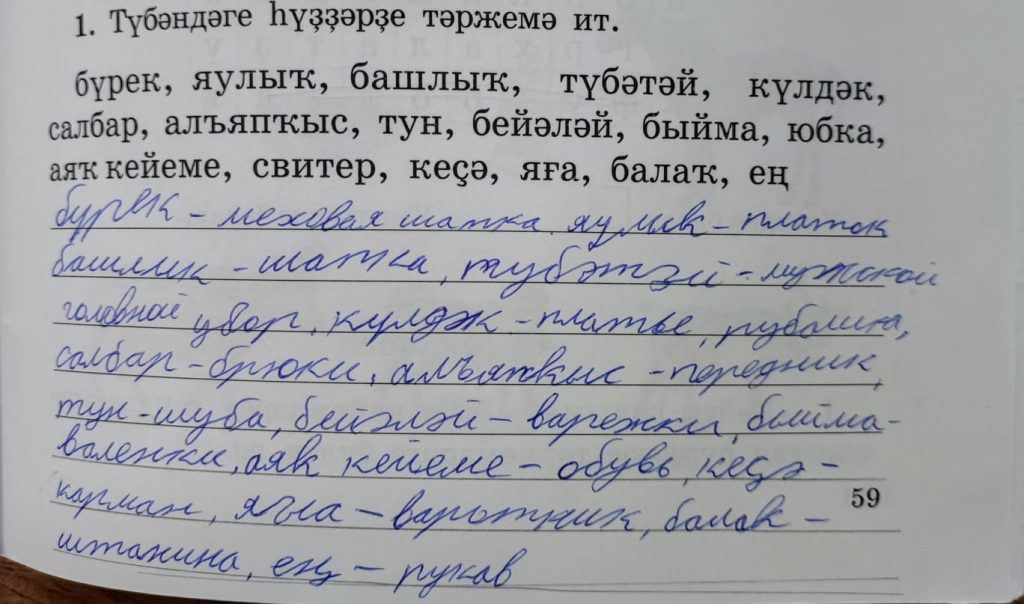 1. Түбәндәге һүҙҙәрҙе тәржемә ит.
бүрек, яулыҡ, башлыҡ, түбәтәй, күлдәк,
салбар, алъяпҡыс, тун, бейәләй, быйма, юбка,
аяҡ кейеме, свитер, кеҫә, яға, балаҡ, ең
бүрек – меховая шапка, яулык – платок
башлык – шапка, түбәтәй – мужской
головной убор, күлдәк – платье, рубашка,
салбар – брюки, алъяпкыс – передник,
тун – шуба, бейәләй – варежки, быйма –
валенки, аяк кейеме – обувь, кеҫә –
карман, яға – варотник, балак –
штанина, ең – рукав
59